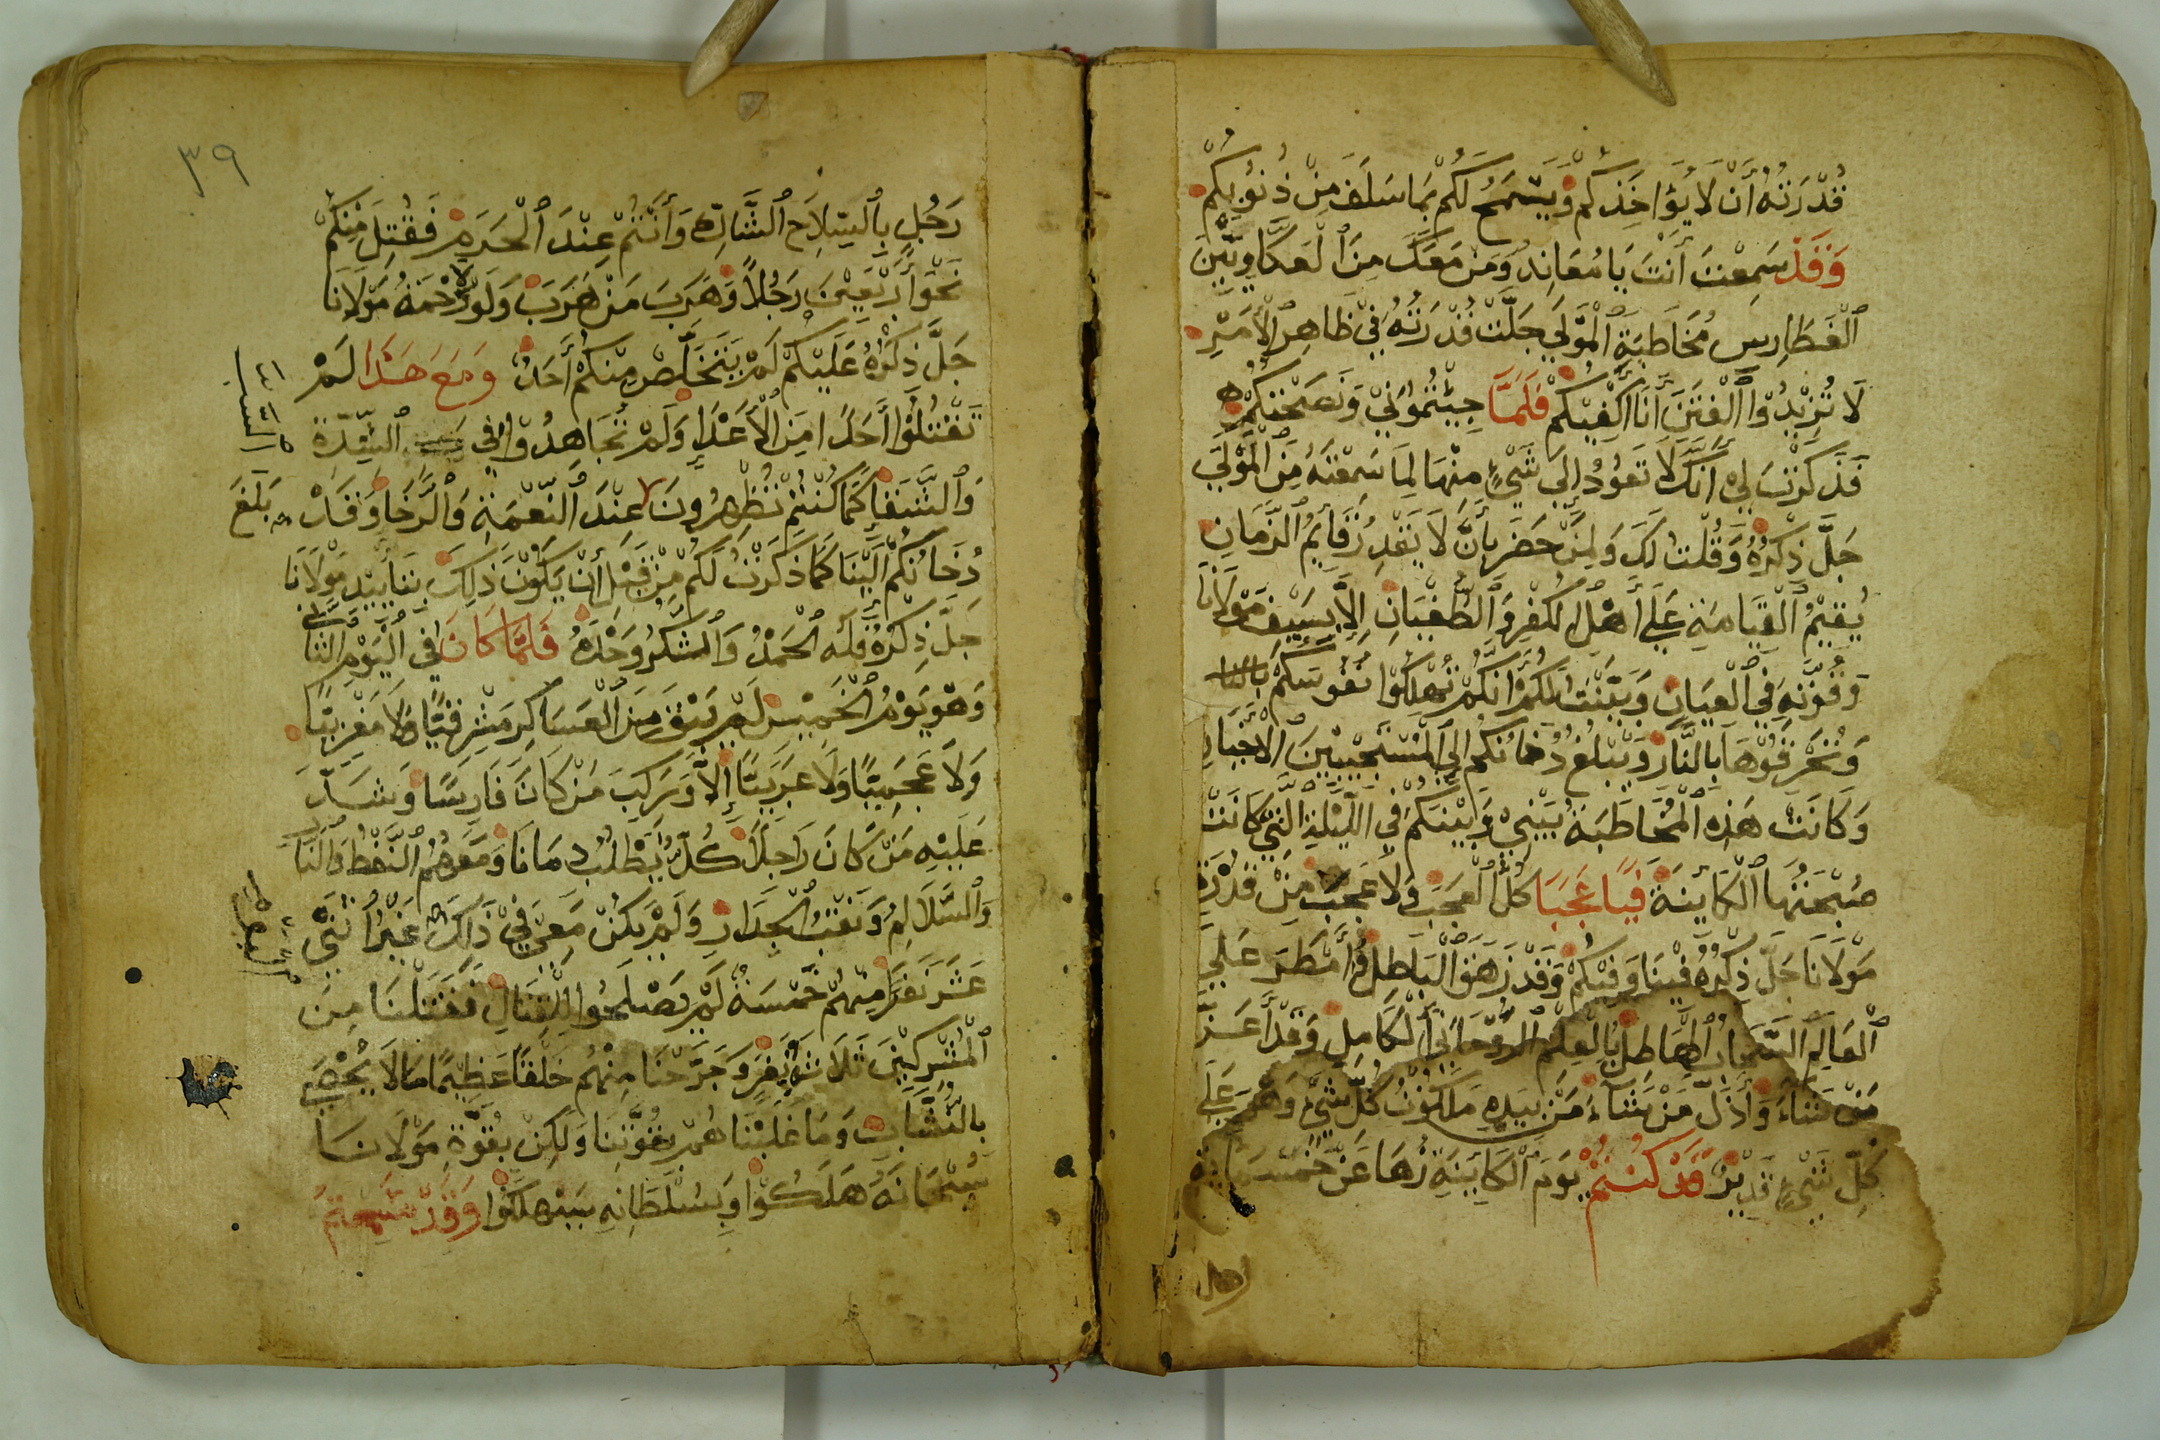 قُدْرَتُهُ أَنْ لَا يُؤَاخِذَكُمْ وَيَسْمَحُ لَكُمْ بِمَا سَلَفَ مِنْ ذُنُوبِكُمْ
وَقَدْ سَمِعْتَ أَنْتَ يَا مُعَانِدُ وَمَنْ مَعَكَ مِنَ الْعَكَّاوِيِّينَ
الْغَطَارِيسِ مُخَاطَبَةِ الْمَوْلَى جَلَّتْ قُدْرَتُهُ فِي ظَاهِرِ الْأَمْرِ
لَا تُرِيدُوا الْفِتَنَ أَنَا أَكْفِيكُمْ فَلَمَّا جِئْتُمُونِي وَنَصَحْتُكُمْ
فَذَكَرْتَ لِي أَنَّكَ لَا تَعُودُ إِلَى شَيْءٍ مِنْهَا لِمَا سَمِعْتَهُ مِنَ الْمَوْلَى
جَلَّ ذِكْرُهُ وَقُلْتُ لَكَ وَلِمَنْ حَضَرَ بِأَنَّ لَا يَقْدِرُ قَائِمُ الزَّمَانِ
يُقِيمُ الْقِيَامَةِ عَلَى أَهْلِ الْكُفْرِ وَالطُّغْيَانِ إِلَّا بِسَيْفِ مَوْلَانَا
وَقُوَّتِهِ فِي الْعِيَانِ وَبَيَّنْتُ لَكُمْ أَنَّكُمْ تُهْلِكُوا نُفُوسَكُمْ
وَتُحْرِقُوهَا بِالنَّارِ وَيَبْلُغُ دُخَانُكُمْ إِلَى الْمُسْتَجِيبِينَ الْأَخْيَارِ
وَكَانَتْ هَذِهِ الْمُخَاطَبَةُ بَيْنِي وَبَيْنَكُمْ فِي اللَّيْلَةِ الَّتِي كَانَتْ
صُبْحَتُهَا الْكَائِنَةُ فَيَا عَجَبًا كُلُّ الْعَجَبِ وَلَا عَجَبَ مِنْ قُدْرَةِ
مَوْلَانَا جَلَّ ذِكْرُهُ فِينَا وَفِيكُمْ وَقَدْ زَهَقَ الْبَاطِلُ وَأَمْطَرَ عَلَى
الْعَالَمِ السَّحَابُ الْهَاطِلُ بِالْعِلْمِ الرُّوحَانِيِّ الْكَامِلِ وَقَدْ أَعَزَّ
مَنْ يَشَاءُ وَأَذَلَّ مَنْ يَشَاءُ مَنْ بِيَدِهِ مَلَكُوتُ كُلِّ شَيْءٍ وَهُوَ عَلَى
كُلِّ شَيْءٍ قَدِيرٌ وَقَدْ كُنْتُمْ يَوْمَ الْكَائِنَةِ زُهَا عَنْ خَمْسمِائَةِ
رجل
٣٩
رَجُلٍ بِالسِّلَاحِ الشَّاكِ وَأَنْتُمْ عِنْدَ الْحَرَمِ فَقُتِلَ مِنْكُمْ
نَحْوَ أَرْبَعِينَ رَجُلًا وَهَرَبَ مَنْ هَرَبَ وَلَوْلَا رَحْمَةُ مَوْلَانَا
جَلَّ ذِكْرُهُ عَلَيْكُمْ لَمْ يَتَخَلَّصْ مِنْكُمْ أَحَدٌ وَمَعَ هَذَا لَمْ
تَقْتُلُوا أَحَدًا مِنَ الْأَعْدَاءِ وَلَمْ تُجَاهِدُوا فِي الشِّدَّةِ
وَالشَّقَاءِ كَمَا كُنْتُمْ تُظْهِرُونَ عِنْدَ النِّعْمَةِ وَالرَّخَاءِ وَقَدْ بَلَغَ
دُخَانُكُمْ إِلَيْنَا كَمَا ذَكَرْتُ لَكُمْ مِنْ قَبْلِ أَنْ يَكُونَ ذَلِكَ بِتَأْيِيدِ مَوْلَانَا
جَلَّ ذِكْرُهُ فَلَهُ الْحَمْدُ وَالشُّكْرُ وَحْدَهُ فَلَمَّا كَانَ فِي الْيَوْمِ الثَّانِي
وَهُوَ يَوْمُ الْخَمِيسِ لَمْ يَبْقَ مِنَ الْعَسَاكِرِ مَشْرِقِيًّا وَلَا مَغْرِبِيًّا
وَلَا عَجَمِيًّا وَلَا عَرَبِيًّا إِلَّا وَرَكِبَ مَنْ كَانَ فَارِسًا وَشَدَّ
عَلَيْهِ مَنْ كَانَ رَاجِلًا كُلٌّ يَطْلُبُ دِمَانَا وَمَعَهُمُ النَّفْطُ وَالنَّارُ
وَالسَّلَالِمُ وَنَقْبُ الْجَدَارِ وَلَمْ يَكُنْ مَعِي فِي ذَلِكَ غَيْرُ اثْنَى
عَشَرَ نَفَرًا مِنْهُمْ خَمْسَةٌ لَمْ يَصْلَحُوا لِلْقِتَالِ فَقَتَلْنَا مِنَ
الْمُشْرِكِينَ ثَلَاثَةَ نَفَرٍ وَجَرَحْنَا مِنْهُمْ خَلْقًا عَظِيمًا مَا لَا يُحْصَى
بِالنُّشَّابِ وَمَا غَلَبْنَاهُمْ بِقُوَّتِنَا وَلَكِنْ بِقُوَّةِ مَوْلَانَا
سُبْحَانَهُ هَلَكُوا وَبِسُلْطَانِهِ سَيَهْلَكُوا وَقَدْ سَمِعْتُمْ